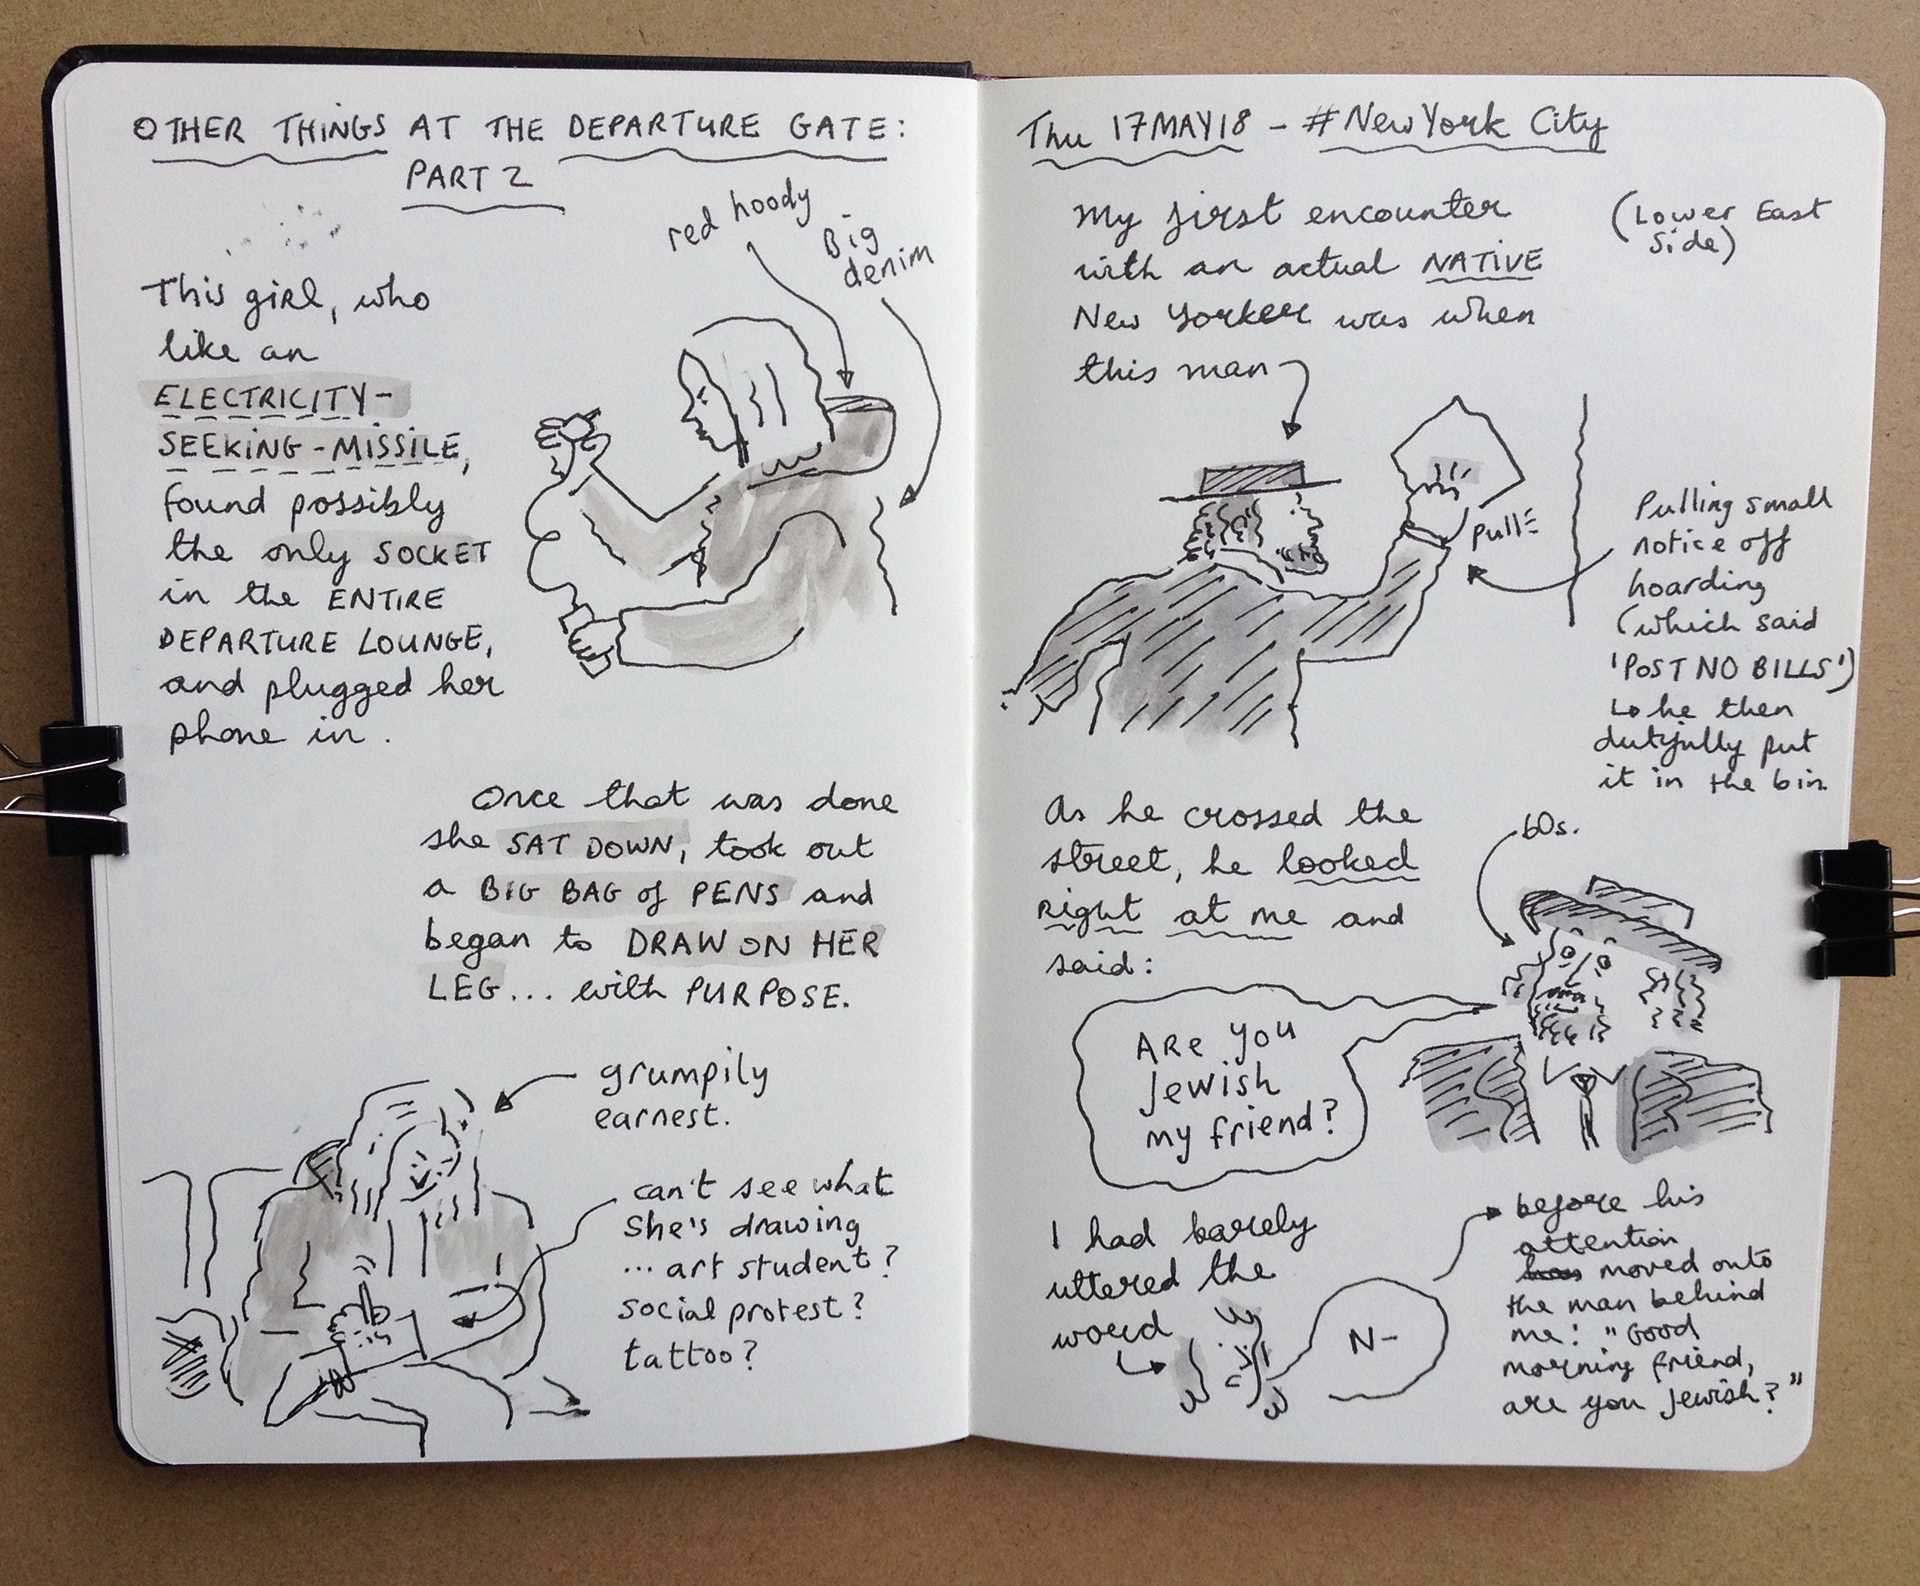 OTHER THINGS AT THE DEPARTURE GATE:
PART 2
red hoody
Big
denim
This girl, who
like an
ELECTRICITY-
SEEKING-MISSILE,
found possibly
the only SOCKET
in the ENTIRE
DEPARTURE LOUNGE,
and plugged her
phone in.
Once that was done
she SAT DOWN, took out
a BIG BAG of PENS and
began to DRAW ON HER
LEG... with PURPOSE.
grumpily
earnest.
can't see what
She's drawing
... art student?
social protest?
tattoo?
Thu 17MAY18 - #New York City
My first encounter
with an actual NATIVE
New Yorker was when
this man
(Lower East
Side)
PULL
Pulling small
notice off
hoarding
(which said
'POST NO BILLS')
↳ he then
dutifully put
it in the bin.
As he crossed the
street, he looked
right at me and
said:
60s.
Are you
Jewish
my friend?
I had barely
uttered the
word
N-
before his
attention
has moved onto
the man behind
me: "Good
morning friend,
are you Jewish?"